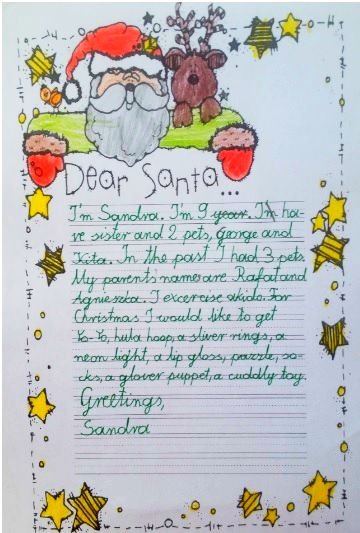 Dear Santa...
I'm Sandra. I'm 9 year. I'm ha-
ve sister and 2 pets, George and
Kita. In the past I had 3 pets.
My parents name are Rafał and
Agnieszka. I excercise aikido. For
Christmas I would like to get
Yo-Yo, hula hoop, a sliver rings, a
neon light, a lip gloss, puzzle, so-
cks, a glover puppet, a cuddly toy.
Greetings,
Sandra